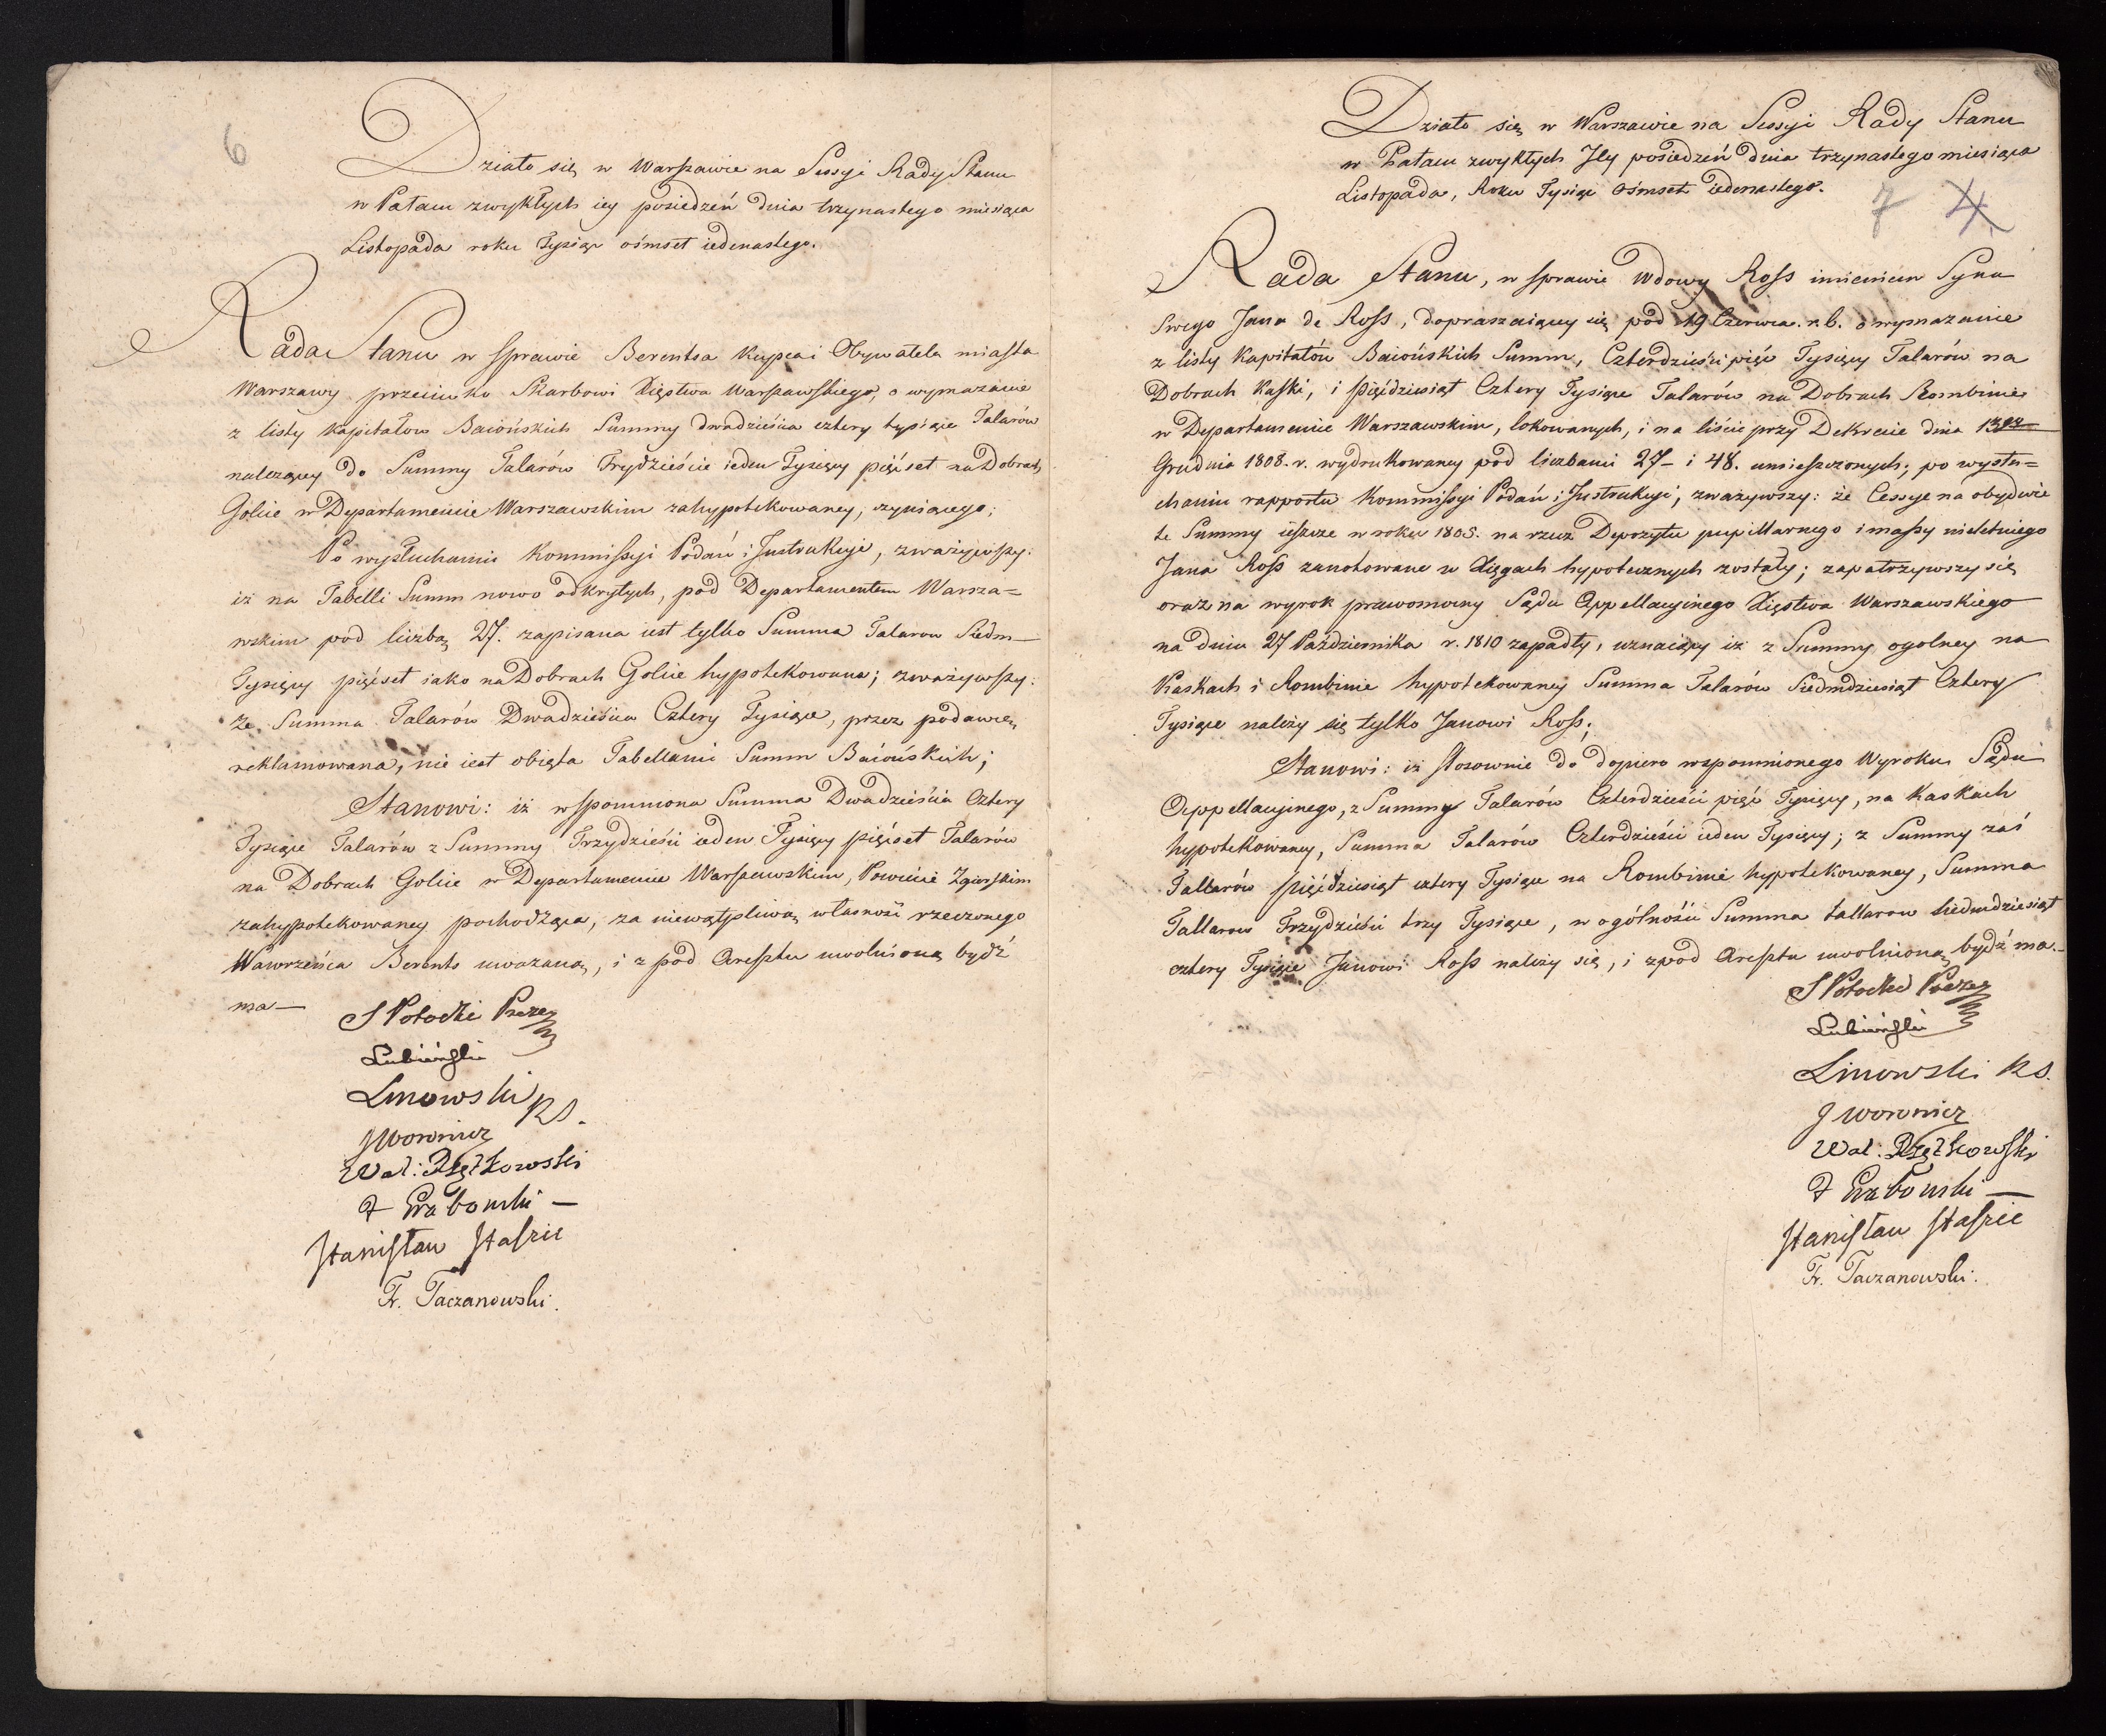 6
Działo się w Warszawie na Sessyi Rady Stanu
w Pałacu zwykłych iey posiedzeń dnia trzynastego miesiąca
Listopada roku Tysiąc ośmset iedenastego.
Rada Stanu w sprawie Berentsa Kupca i Obywatela miasta
Warszawy przeciwko Skarbowi Xięstwa Warszawskiego, o wymazanie
z listy Kapitałow Baiońskich Summy dwadzieścia cztery tysiące Talarów
należącey do Summy Talarów Trzydzieście ieden Tysięcy pięćset na Dobrach
Golice w Departamencie Warszawskim zahypotekowaney, czyniącego;
Po wysłuchaniu Kommissyi Podań i Instrukcyi, zważywszy:
iż na Tabelli Summ nowo odkrytych, pod Departamentem Warsza=
wskim pod liczbą 27. zapisana iest tylko Summa Talarow Siedm—
Tysięcy pięćset iako na Dobrach Golice hypotekowana; zważywszy:
że Summa Talarów Dwadzieścia Cztery Tysiące, przez podawcę
reklamowana, nie iest obięta Tabellami Summ Baiońskich;
Stanowi: iż wspomniona Summa Dwadzieścia Cztery
Tysiące Talarów z Summy Trzydzieści ieden Tysięcy pięćset Talarów
na Dobrach Golice w Departamencie Warszawskim, Powiecie Zgierskim
zahypotekowaney pochodząca, za niewątpliwą własność rzeczonego
Wawrzeńca Berents uważaną, i z pod Aresztu uwolnioną bydź
ma—
S Potocki Prezes
Lubieński
Linowski RS.
J Woronicz
Wal: Rzętkowski
Grabowski —
Stanisław Staszic
Fr. Taczanowski.
Działo się w Warszawie na Sessyi Rady Stanu
w Pałacu zwykłych Jey posiedzeń dnia trzynastego miesiąca
Listopada, Roku Tysiąc ośmset iedenastego.
7 4
Rada Stanu, w sprawie Wdowy Ross imieniem Syna
Swego Jana de Ross, dopraszaiącey się pod 19 Czerwca. r. b. o wymazanie
z listy Kapitałów Baiońskich Summ, Czterdzieści pięć Tysięcy Talarów na
Dobrach Kaski, i pięćdziesiąt Cztery Tysiące Talarów na Dobrach Rombinie
w Departamencie Warszawskim, lokowanych, i na liście przy Dekrecie dnia
Grudnia 1808. r. wydrukowaney pod liczbami 27— i 48. umieszczonych; po wysłu=
chaniu rapportu Kommissyi Podań i Instrukcyi, zważywszy: że Cessye na obydwie
te Summy ieszcze w roku 1805. na rzecz Depozytu pupillarnego i massy nieletniego
Jana Ross zanotowane w Xięgach hypotecznych zostały; zapatrzywszy się
oraz na wyrok prawomocny Sądu Appellacyinego Xięstwa Warszawskiego
na dniu 27 Października r. 1810 zapadły, uznaiący iż z Summy ogolney na
Kaskach i Rombinie hypotekowaney Summa Talarów Siedmdziesiąt Cztery
Tysiące należy się tylko Janowi Ross;
Stanowi: iż stosownie do dopiero wspomnionego Wyroku Sądu
Appellacyinego, z Summy Talarów Czterdzieści pięć Tysięcy, na Kaskach
hypotekowaney, Summa Talarów Czterdzieści ieden Tysięcy; z Summy zaś
Tallarów pięćdziesiąt cztery Tysiące na Rombinie hypotekowaney, Summa
Tallarow Trzydzieści trzy Tysiące, w ogólności Summa tallarow siedmdziesiąt
cztery Tysiące Janowi Ross należy się, i zpod Aresztu uwolnioną bydź ma.—
S Potocki Prezes
Lubieński
Linowski RS.
J Woronicz
Wal: Rzętkowski
Grabowski —
Stanisław Staszic
Fr. Taczanowski.